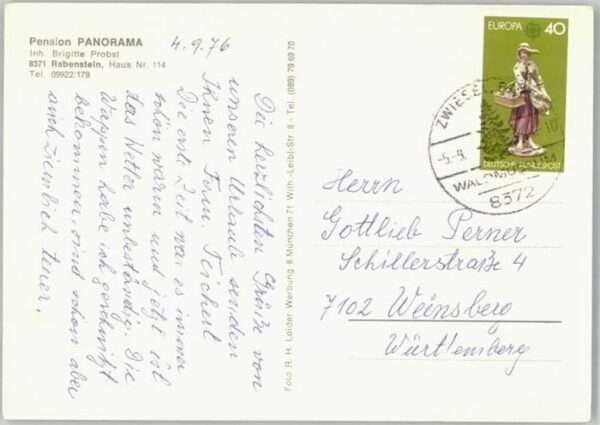 Pension PANORAMA
Inh. Brigitte Probst
8371 Rabenstein, Haus Nr. 114
Tel. 09922/179
4.9.76
Die herzlichsten Grüße von
unserem Urlaub senden
Ihnen Fam. Teichert
Die erste Zeit war es immer
schön warm und jetzt ist
das Wetter unbeständig. Die
Wappen habe ich
bekommen, sind schon aber
auch ziemlich teuer.
Foto R. H. Loider Werbung 8 München 71 Wilh.-Leibl-Str. 8 - Tel. (089) 79 69 70
EUROPA 40
DEUTSCHE BUNDESPOST
ZWIESEL
5.-9.
8372
Herrn
Gottlieb Perner
Schillerstraße 4
7102 Weinsberg
Württemberg